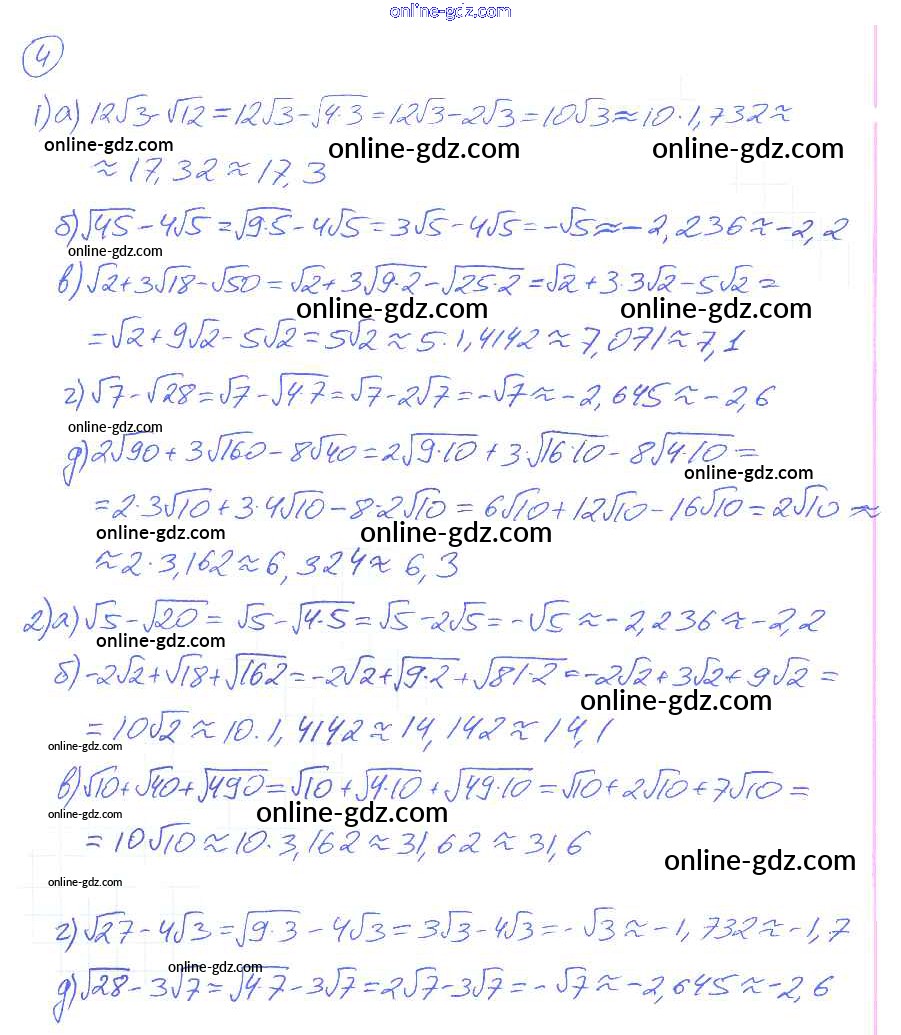 online-gdz.com
4
1) а) 12√3 - √12 = 12√3 - √4·3 = 12√3 - 2√3 = 10√3 ≈ 10·1,732 ≈
online-gdz.com online-gdz.com online-gdz.com
≈ 17,32 ≈ 17,3
б) √45 - 4√5 = √9·5 - 4√5 = 3√5 - 4√5 = -√5 ≈ -2,236 ≈ -2,2
online-gdz.com
в) √2 + 3√18 - √50 = √2 + 3√9·2 - √25·2 = √2 + 3·3√2 - 5√2 =
online-gdz.com online-gdz.com
= √2 + 9√2 - 5√2 = 5√2 ≈ 5·1,4142 ≈ 7,071 ≈ 7,1
г) √7 - √28 = √7 - √4·7 = √7 - 2√7 = -√7 ≈ -2,645 ≈ -2,6
online-gdz.com
д) 2√90 + 3√160 - 8√40 = 2√9·10 + 3·√16·10 - 8√4·10 =
online-gdz.com
= 2·3√10 + 3·4√10 - 8·2√10 = 6√10 + 12√10 - 16√10 = 2√10 ≈
online-gdz.com online-gdz.com
≈ 2·3,162 ≈ 6,324 ≈ 6,3
2) а) √5 - √20 = √5 - √4·5 = √5 - 2√5 = -√5 ≈ -2,236 ≈ -2,2
online-gdz.com
б) -2√2 + √18 + √162 = -2√2 + √9·2 + √81·2 = -2√2 + 3√2 + 9√2 =
online-gdz.com
= 10√2 ≈ 10·1,4142 ≈ 14,142 ≈ 14,1
online-gdz.com
в) √10 + √40 + √490 = √10 + √4·10 + √49·10 = √10 + 2√10 + 7√10 =
online-gdz.com online-gdz.com
= 10√10 ≈ 10·3,162 ≈ 31,62 ≈ 31,6
online-gdz.com
online-gdz.com
г) √27 - 4√3 = √9·3 - 4√3 = 3√3 - 4√3 = -√3 ≈ -1,732 ≈ -1,7
online-gdz.com
д) √28 - 3√7 = √4·7 - 3√7 = 2√7 - 3√7 = -√7 ≈ -2,645 ≈ -2,6